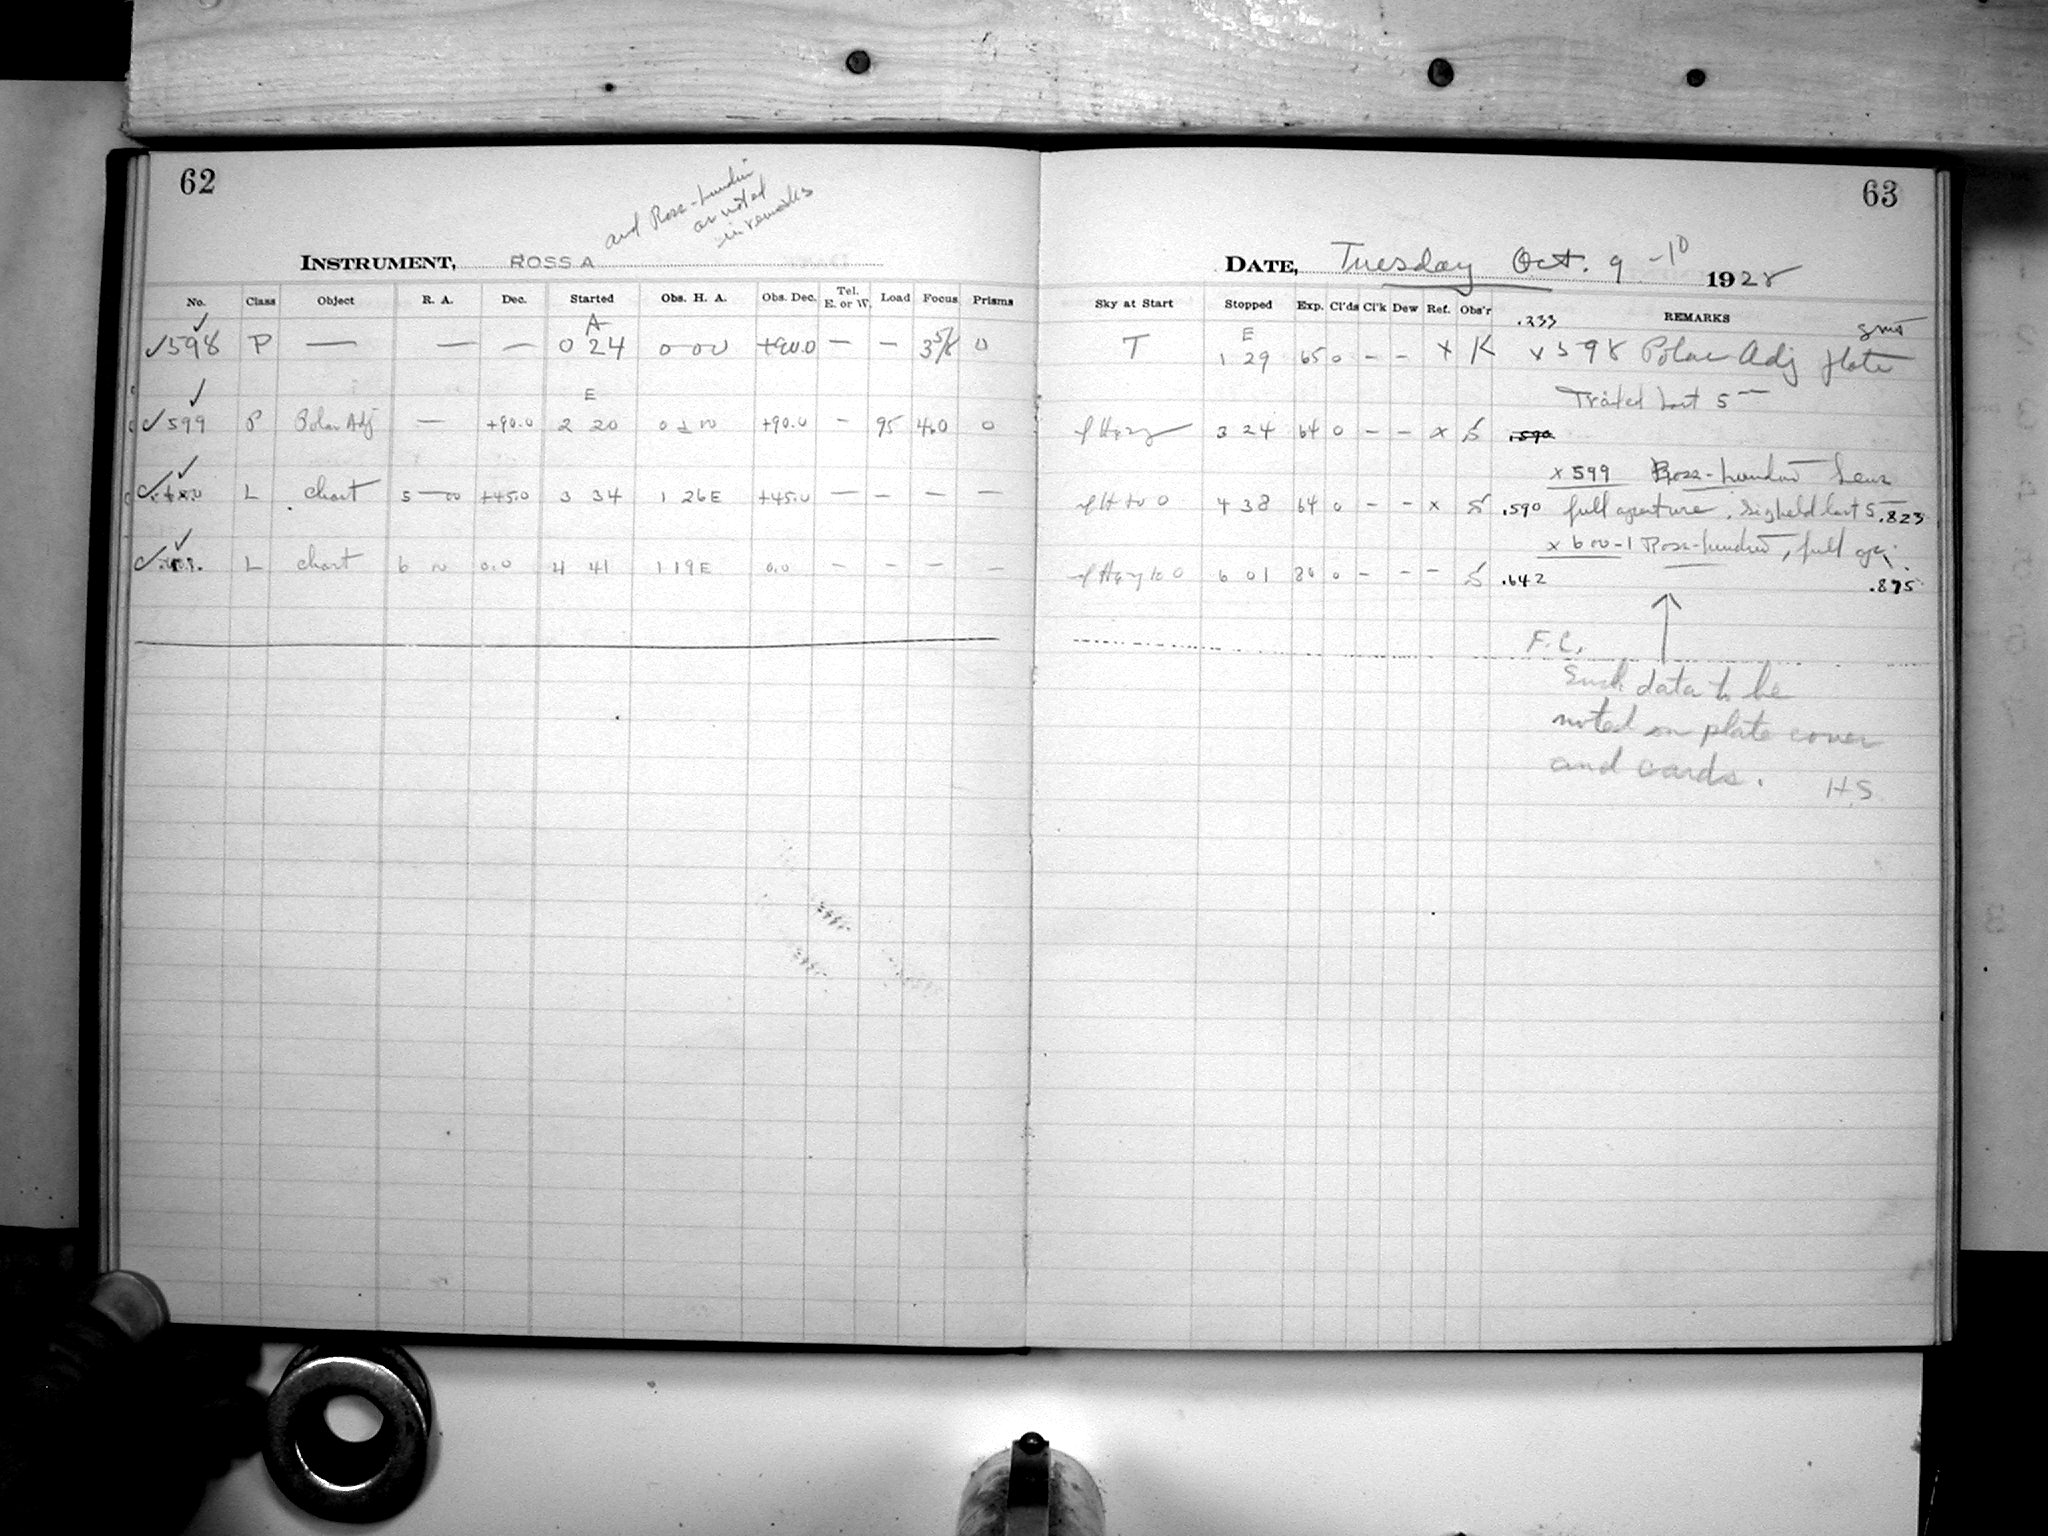 62
and Ross-Lundin
as noted
in remarks
INSTRUMENT, ROSS A
No. Class Object R. A. Dec. Started Obs. H. A. Obs. Dec. Tel. E. or W. Load Focus Prisms
A
✓598 ✓ P — — — 0 24 0 00 +90.0 — — 3 5/8 0
E
✓599 ✓ P Polar Adj — +90.0 2 20 0 ± 00 +90.0 - 95 4.0 0
L chart 5 — 00 +45.0 3 34 1 26E +45.0 — — — —
L chart 6 00 0.0 4 41 1 19E 0.0 — — — —
63
DATE, Tuesday Oct. 9 - 10 1928
Sky at Start Stopped Exp. Cl'ds Cl'k Dew Ref. Obs'r REMARKS
.233
E
T 1 29 65 0 — — x K x 598 Polar Adj plate
Trailed last 5 —
3 24 64 0 — — x S .590
x 599 Ross-Lundin Lens
4 38 64 0 — — x S .590 full aperture. Sig held last 5 — .823
x 600-1 Ross-Lundin, full ap.
6 01 80 0 — — — S .642 .875
F.C.
Such data to be
noted on plate cover
and cards. H.S.